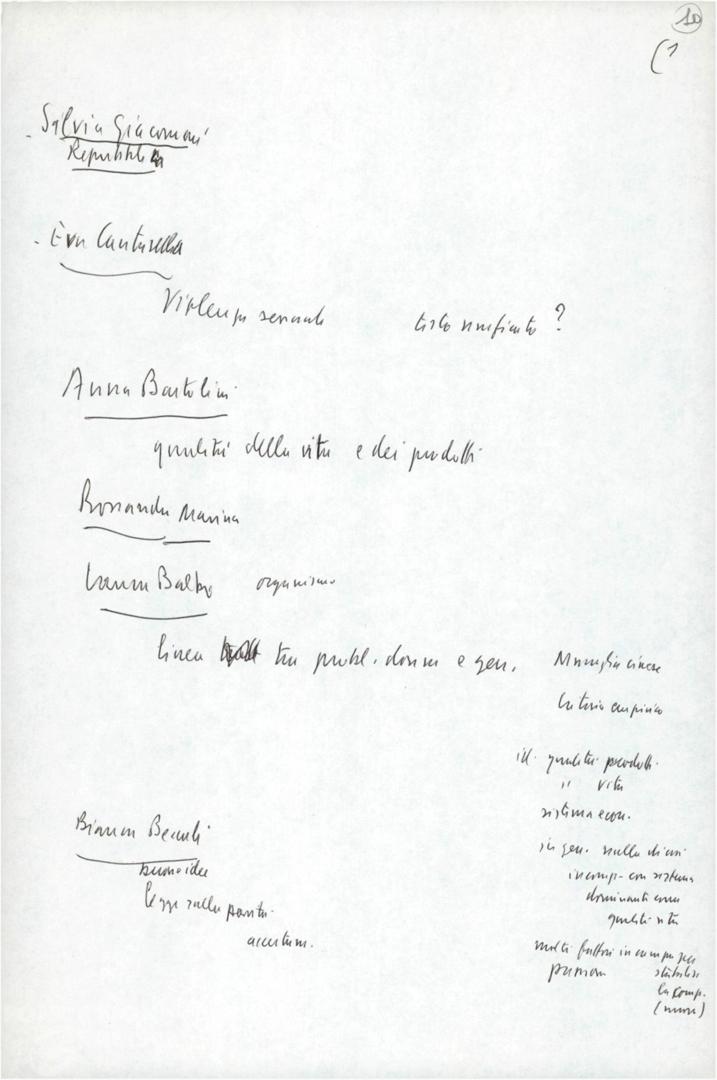 10
(1
- Silvia Giacomoni
Repubblica
- Eva Cantarella
Violenza sessuale testo unificato ?
Anna Bartolini
qualità della vita e dei prodotti
Rossanda Marina
Laura Balbo organismo
linea tra probl. donna e gen.
Muraglia cinese
Criterio empirico
id. qualità prodotti
" vita
sistema econ.
in gen. nulla di
incomp. con sistema
dominanti
qualità vita
Bianca Beccalli
buone idee
legge sulla parità
accertam.
molti fattori in campo per
stabilire
la comp.